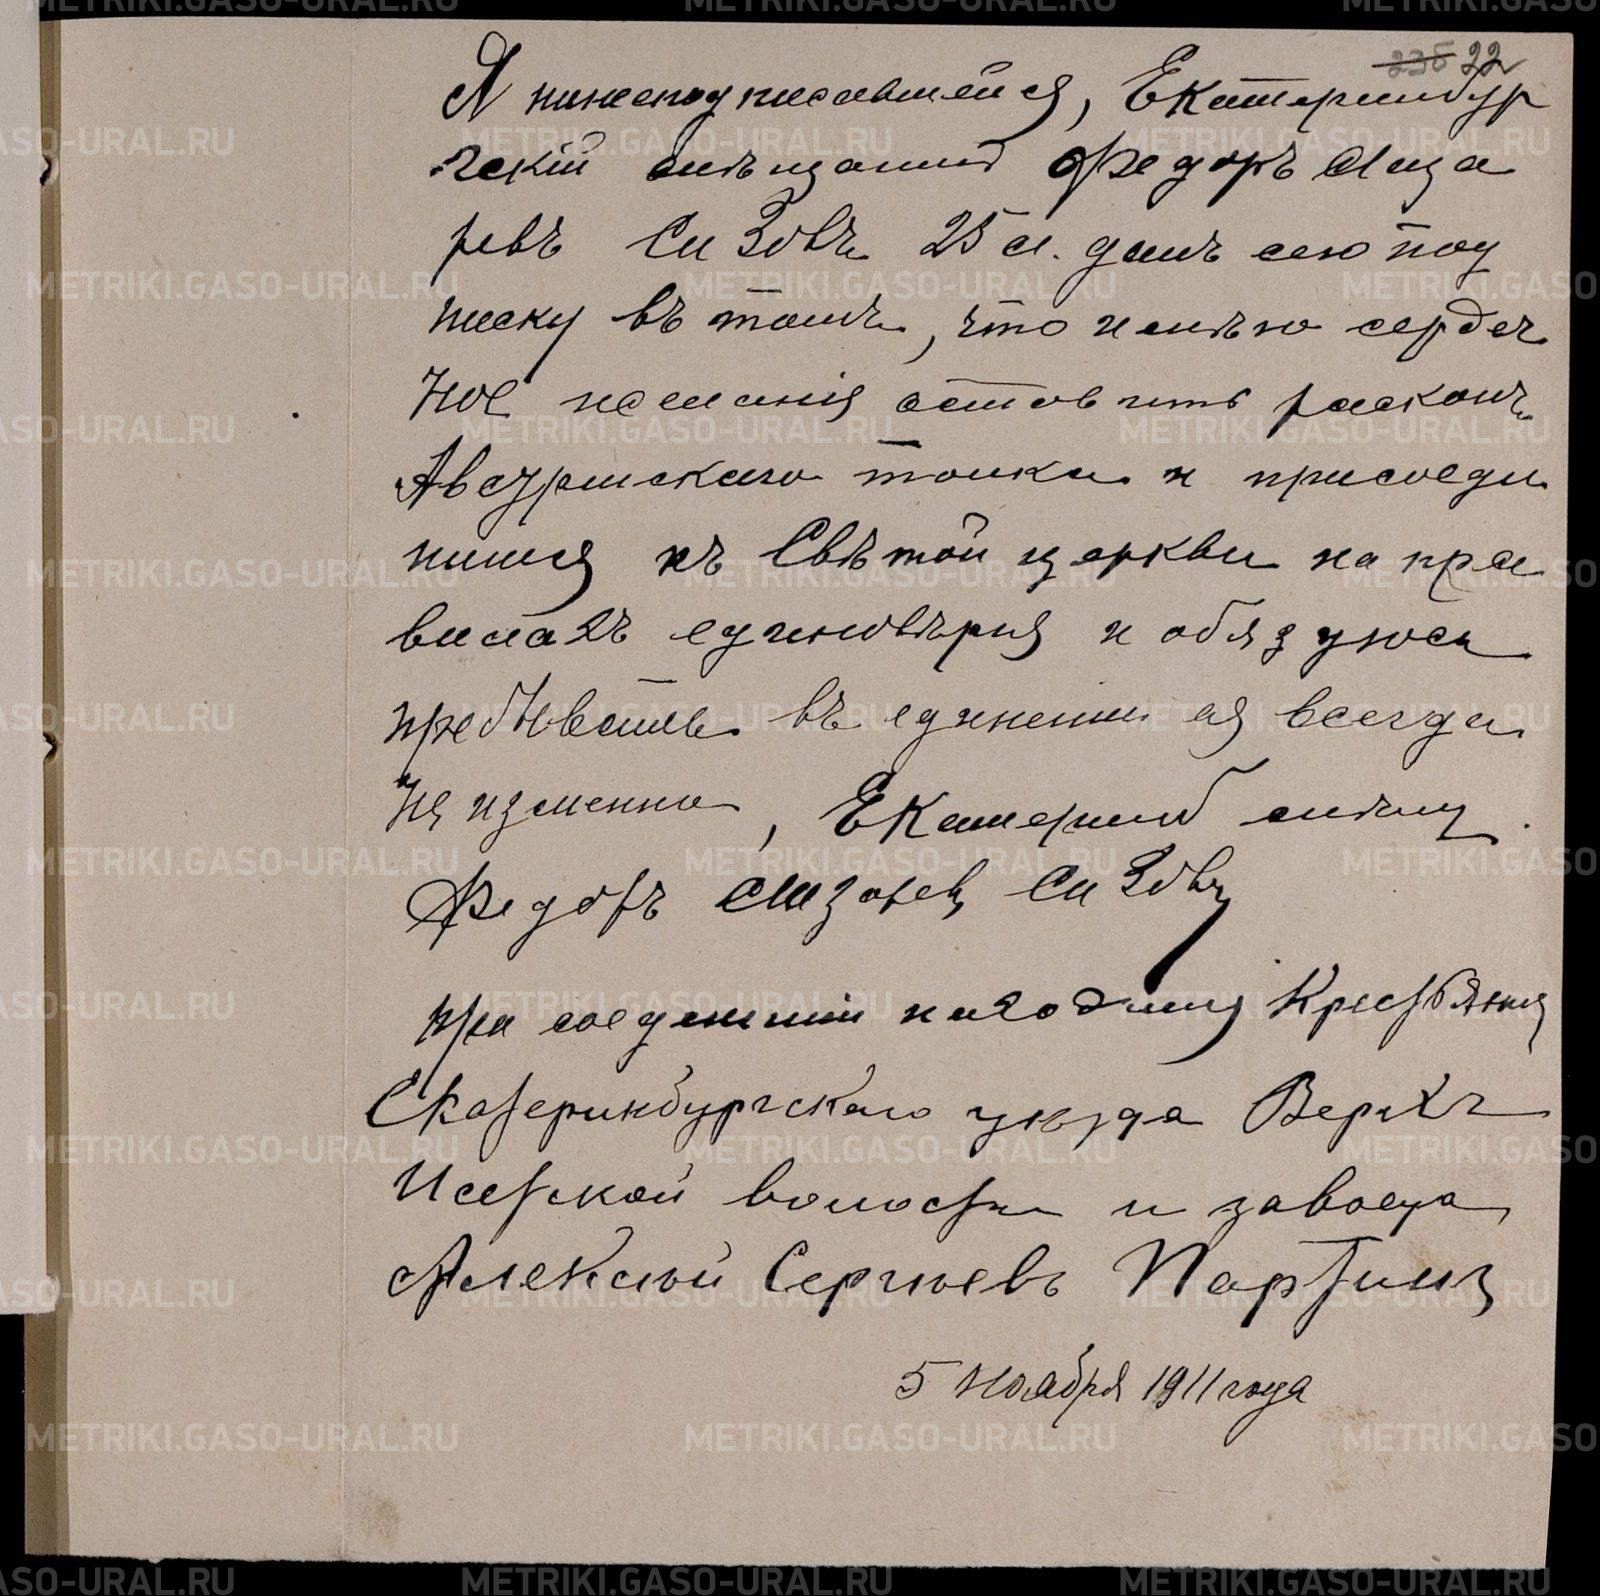 236 22
Я нижеподписавшейся, Екатеринбур
гскій мѣщанинъ Федоръ Лаза
ревъ Сизовъ 25 л. далъ сею под
писку въ томъ, что имѣю сердеч
ное желанія оставить расколъ
Австрискаго толка и присоеди
нится къ Свѣтой церкви на пра
вилахъ единовѣрия и обязуюсь
пребывать въ единении ея всегда
неизменно, Екатеринб мѣщ.
Федоръ Лазаревъ Сизовъ
при соединении находился Крестьянинъ
Екатеринбургскаго уѣзда Верхъ
Исетской волости и завода
Алексѣй Сергѣевъ Партинъ
5 ноября 1911 года
METRIKI.GASO-URAL.RU